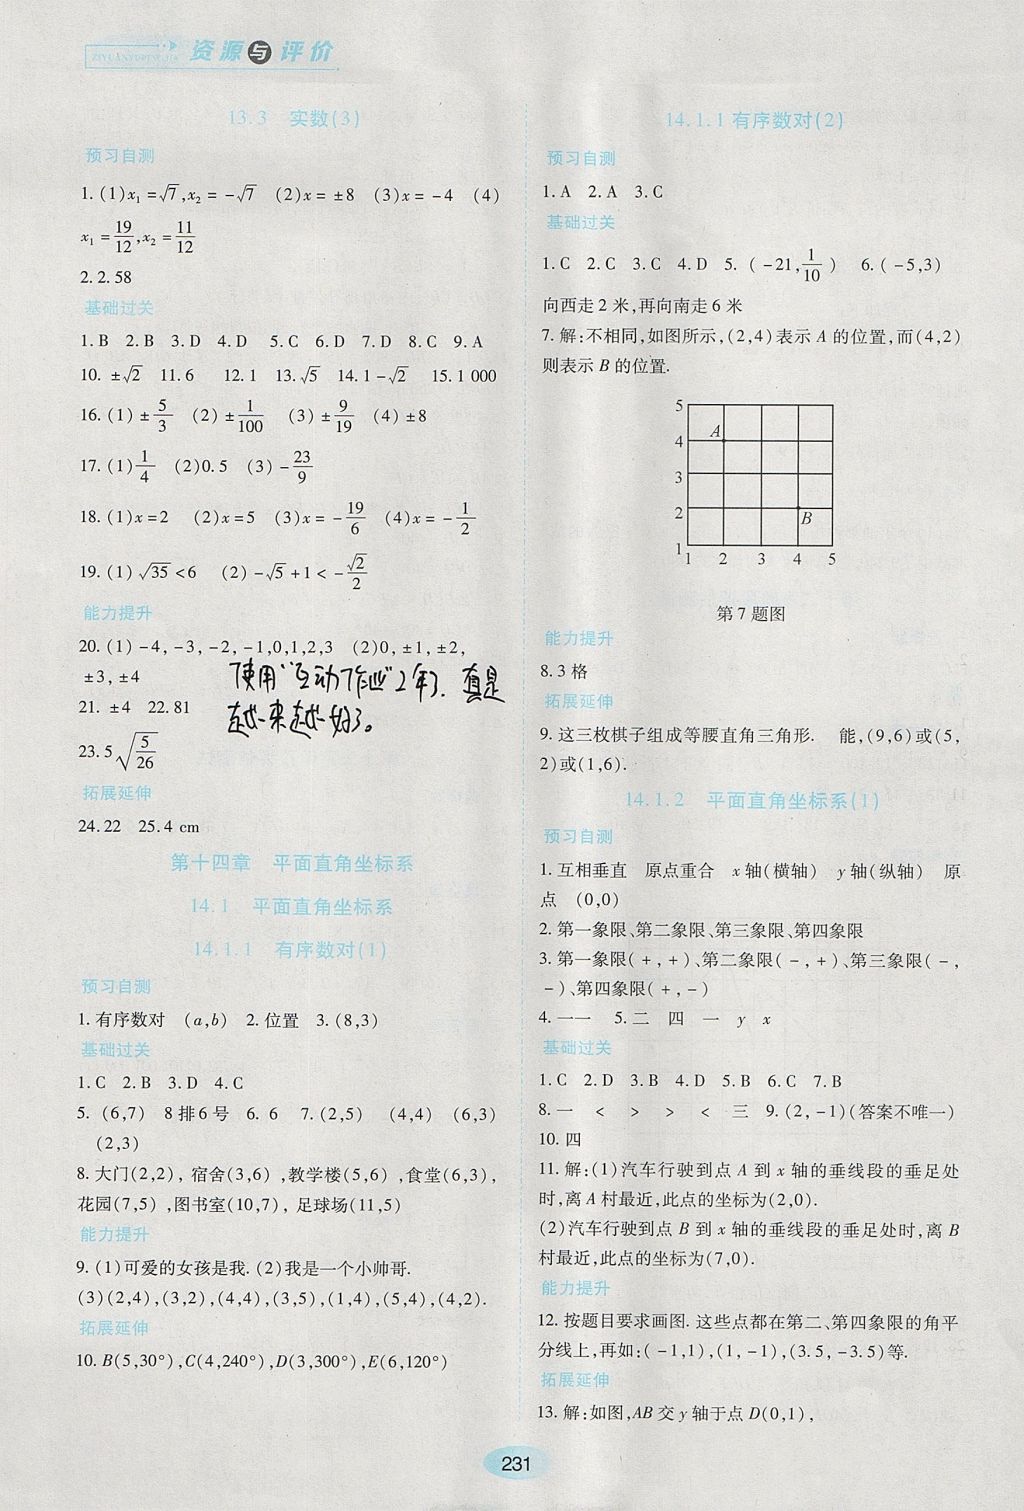 ZIYUANYUPINGJIA
资源与评价
13.3 实数(3)
预习自测
1.(1)x₁=√7,x₂=-√7 (2)x=±8 (3)x=-4 (4)
x₁=19/12,x₂=11/12
2.2.58
基础过关
1.B 2.B 3.D 4.D 5.C 6.D 7.D 8.C 9.A
10.±√2 11.6 12.1 13.√5 14.1-√2 15.1 000
16.(1)±5/3 (2)±1/100 (3)±9/19 (4)±8
17.(1)1/4 (2)0.5 (3)-23/9
18.(1)x=2 (2)x=5 (3)x=-19/6 (4)x=-1/2
19.(1)√35<6 (2)-√5+1<-√2/2
能力提升
20.(1)-4,-3,-2,-1,0,1,2,3 (2)0,±1,±2,
±3,±4
21.±4 22.81
23.5√(5/26)
使用“互动作业”2年了.真是
越来越好了。
拓展延伸
24.22 25.4 cm
第十四章 平面直角坐标系
14.1 平面直角坐标系
14.1.1 有序数对(1)
预习自测
1.有序数对 (a,b) 2.位置 3.(8,3)
基础过关
1.C 2.B 3.D 4.C
5.(6,7) 8排6号 6.6 7.(2,5) (4,4) (6,3)
(2,3)
8.大门(2,2),宿舍(3,6),教学楼(5,6),食堂(6,3),
花园(7,5),图书室(10,7),足球场(11,5)
能力提升
9.(1)可爱的女孩是我.(2)我是一个小帅哥.
(3)(2,4),(3,2),(4,4),(3,5),(1,4),(5,4),(4,2).
拓展延伸
10.B(5,30°),C(4,240°),D(3,300°),E(6,120°)
14.1.1有序数对(2)
预习自测
1.A 2.A 3.C
基础过关
1.C 2.C 3.C 4.D 5.(-21,1/10) 6.(-5,3)
向西走2米,再向南走6米
7.解:不相同,如图所示,(2,4)表示A的位置,而(4,2)
则表示B的位置.
5
4 A
3
2 B
1
1 2 3 4 5
第7题图
能力提升
8.3格
拓展延伸
9.这三枚棋子组成等腰直角三角形. 能,(9,6)或(5,
2)或(1,6).
14.1.2 平面直角坐标系(1)
预习自测
1.互相垂直 原点重合 x轴(横轴) y轴(纵轴) 原
点 (0,0)
2.第一象限、第二象限、第三象限、第四象限
3.第一象限(+,+)、第二象限(-,+)、第三象限(-,
-)、第四象限(+,-)
4.一一 5.二 四 一 y x
基础过关
1.C 2.D 3.B 4.D 5.B 6.C 7.B
8.一 < > > < 三 9.(2,-1)(答案不唯一)
10.四
11.解:(1)汽车行驶到点A到x轴的垂线段的垂足处
时,离A村最近,此点的坐标为(2,0).
(2)汽车行驶到点B到x轴的垂线段的垂足处时,离B
村最近,此点的坐标为(7,0).
能力提升
12.按题目要求画图.这些点都在第二、第四象限的角平
分线上,再如:(-1,1),(1,-1),(3.5,-3.5)等.
拓展延伸
13.解:如图,AB交y轴于点D(0,1),
231